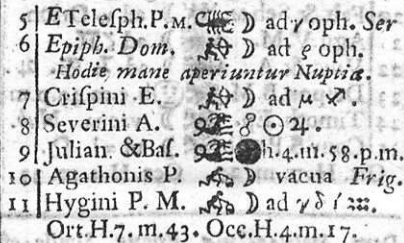 5 E Teleſph. P. M. ♏ ☽ ad γ oph. Ser
6 Epiph. Dom. ♐ ☽ ad ρ oph.
Hodie mane aperiuntur Nuptiæ.
7 Criſpini E. ♐ ☽ ad μ ♐.
8 Severini A. ♑ ☍ ☉ ♃.
9 Julian. &Baſ. ♑ ● h. 4. m. 58. p. m.
10 Agathonis P. ♒ ☽ vacua Frig.
11 Hygini P. M. ♒ ☽ ad γ δ ι ♒.
Ort. H. 7. m. 43. Occ. H. 4. m. 17.